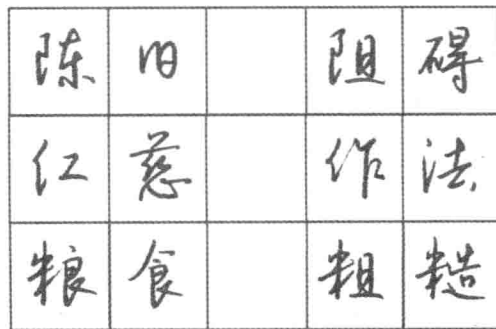 陈旧 阻碍
仁慈 作法
粮食 粗糙